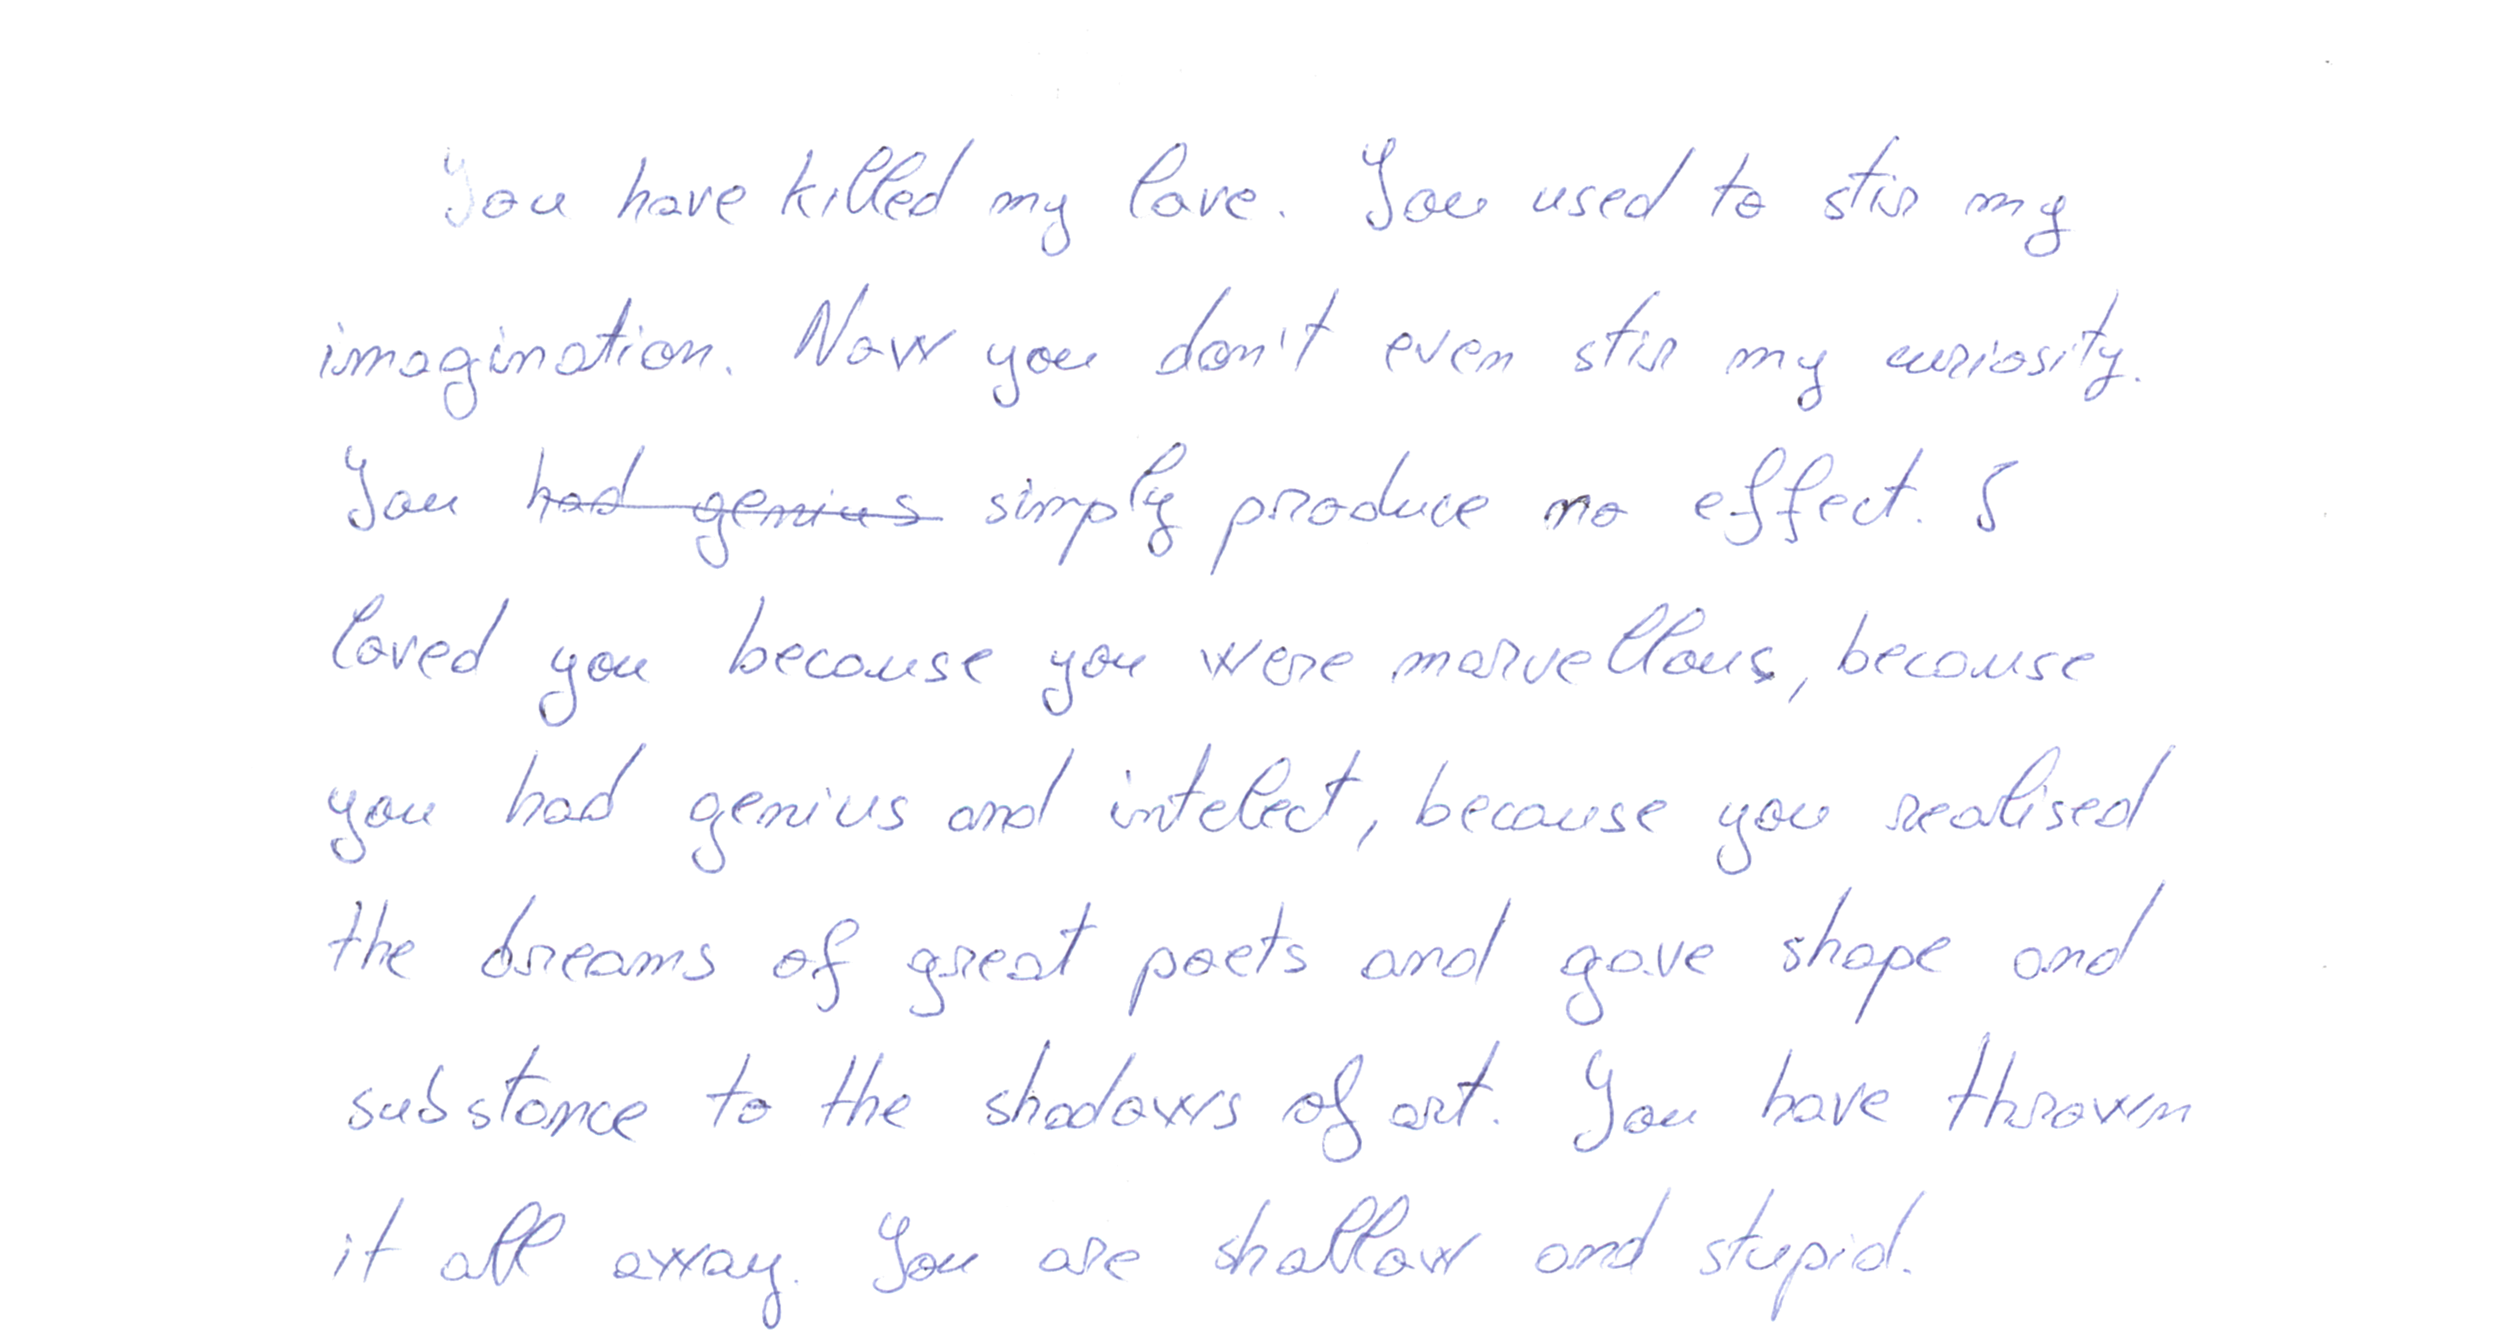 You have killed my love. You used to stir my
imagination. Now you don't even stir my curiosity.
You ~~had genius~~ simply produce no effect. I
loved you because you were marvellous, because
you had genius and intelect, because you realised
the dreams of great poets and gave shape and
substance to the shadows of art. You have thrown
it all away. You are shallow and stupid.